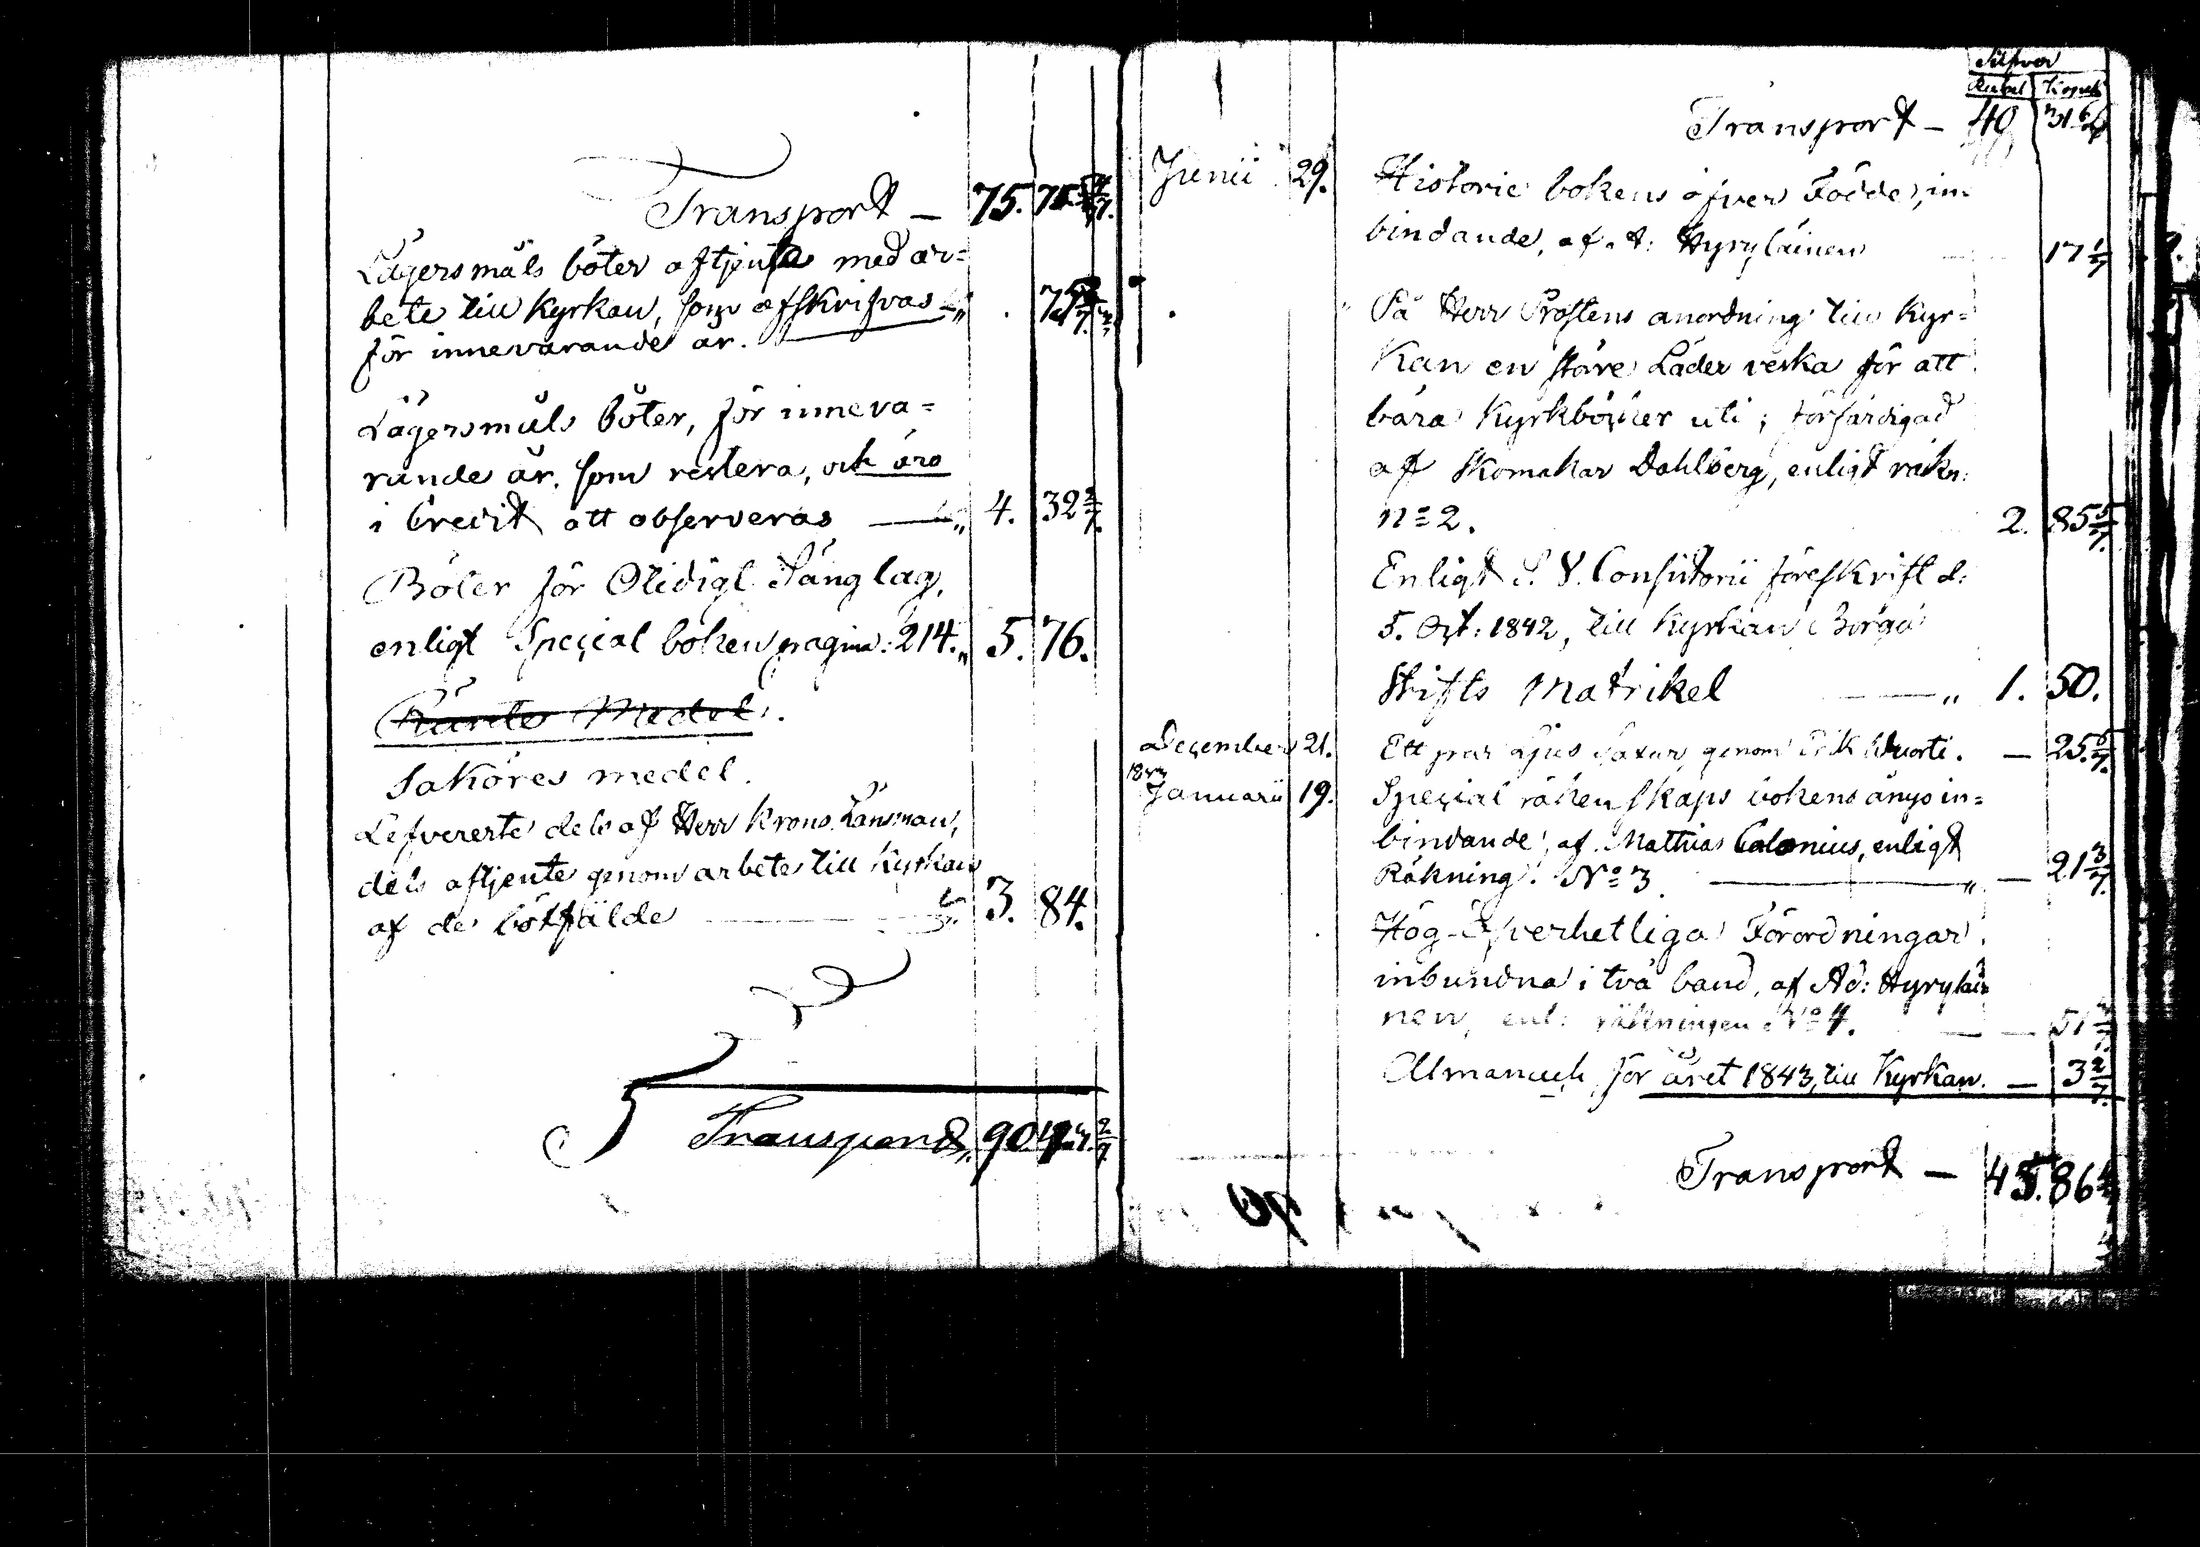 Transport — 75. 75
Lägersmåls böter aftjenta med ar=
bete till Kyrkan, som afskrifvas — „
för innevarande år.
Lägersmåls böter, för inneva=
rande år, som restera, och äro
i Credit att observeras — „ 4. 32 2/7.
Böter för Otidigt Sänglag,
enligt Special boken pagina: 214. „ 5. 76.
Ränte Medel.
Saköres medel.
Lefvererte dels af Herr Krono Länsman,
dels aftjente genom arbete till Kyrkan
af de bötfälde — 3. 84.
Transport „ 90.
Silfver
Rubel Kopek
Transport — 40 31 6/7
Junii 29. Historie bokens öfver Födde, in-
bindande, af A: Hyryläinen 17 1/7
På Herr Prostens anordning till Kyr=
kan en större Läder veska för att
bära Kyrkböcker uti; förfärdigad
af Skomakar Dahlberg, enligt räkn:
n:o 2. 2. 85 5/7.
Enligt S. V. Consistorii föreskrift d:
5. Oct: 1842, till Kyrkan Borgå
Stifts Matrikel — „ 1. 50.
December 21. Ett par Ljus Saxar, genom Erik Wuorti. — 25. 5/7.
1843
Januarii 19. Special räkenskaps bokens ånyo in=
bindande, af Mathias Calonius, enligt
Räkning N:o 3 — „ — 21 3/7.
Hög-Öfverhetliga Förordningar,
inbundna i två band, af Ad: Hyryläi=
nen, enl: räkningen N:o 4. — 51
Almanach för året 1843, till Kyrkan. — 3 2/7.
Transport — 45. 86